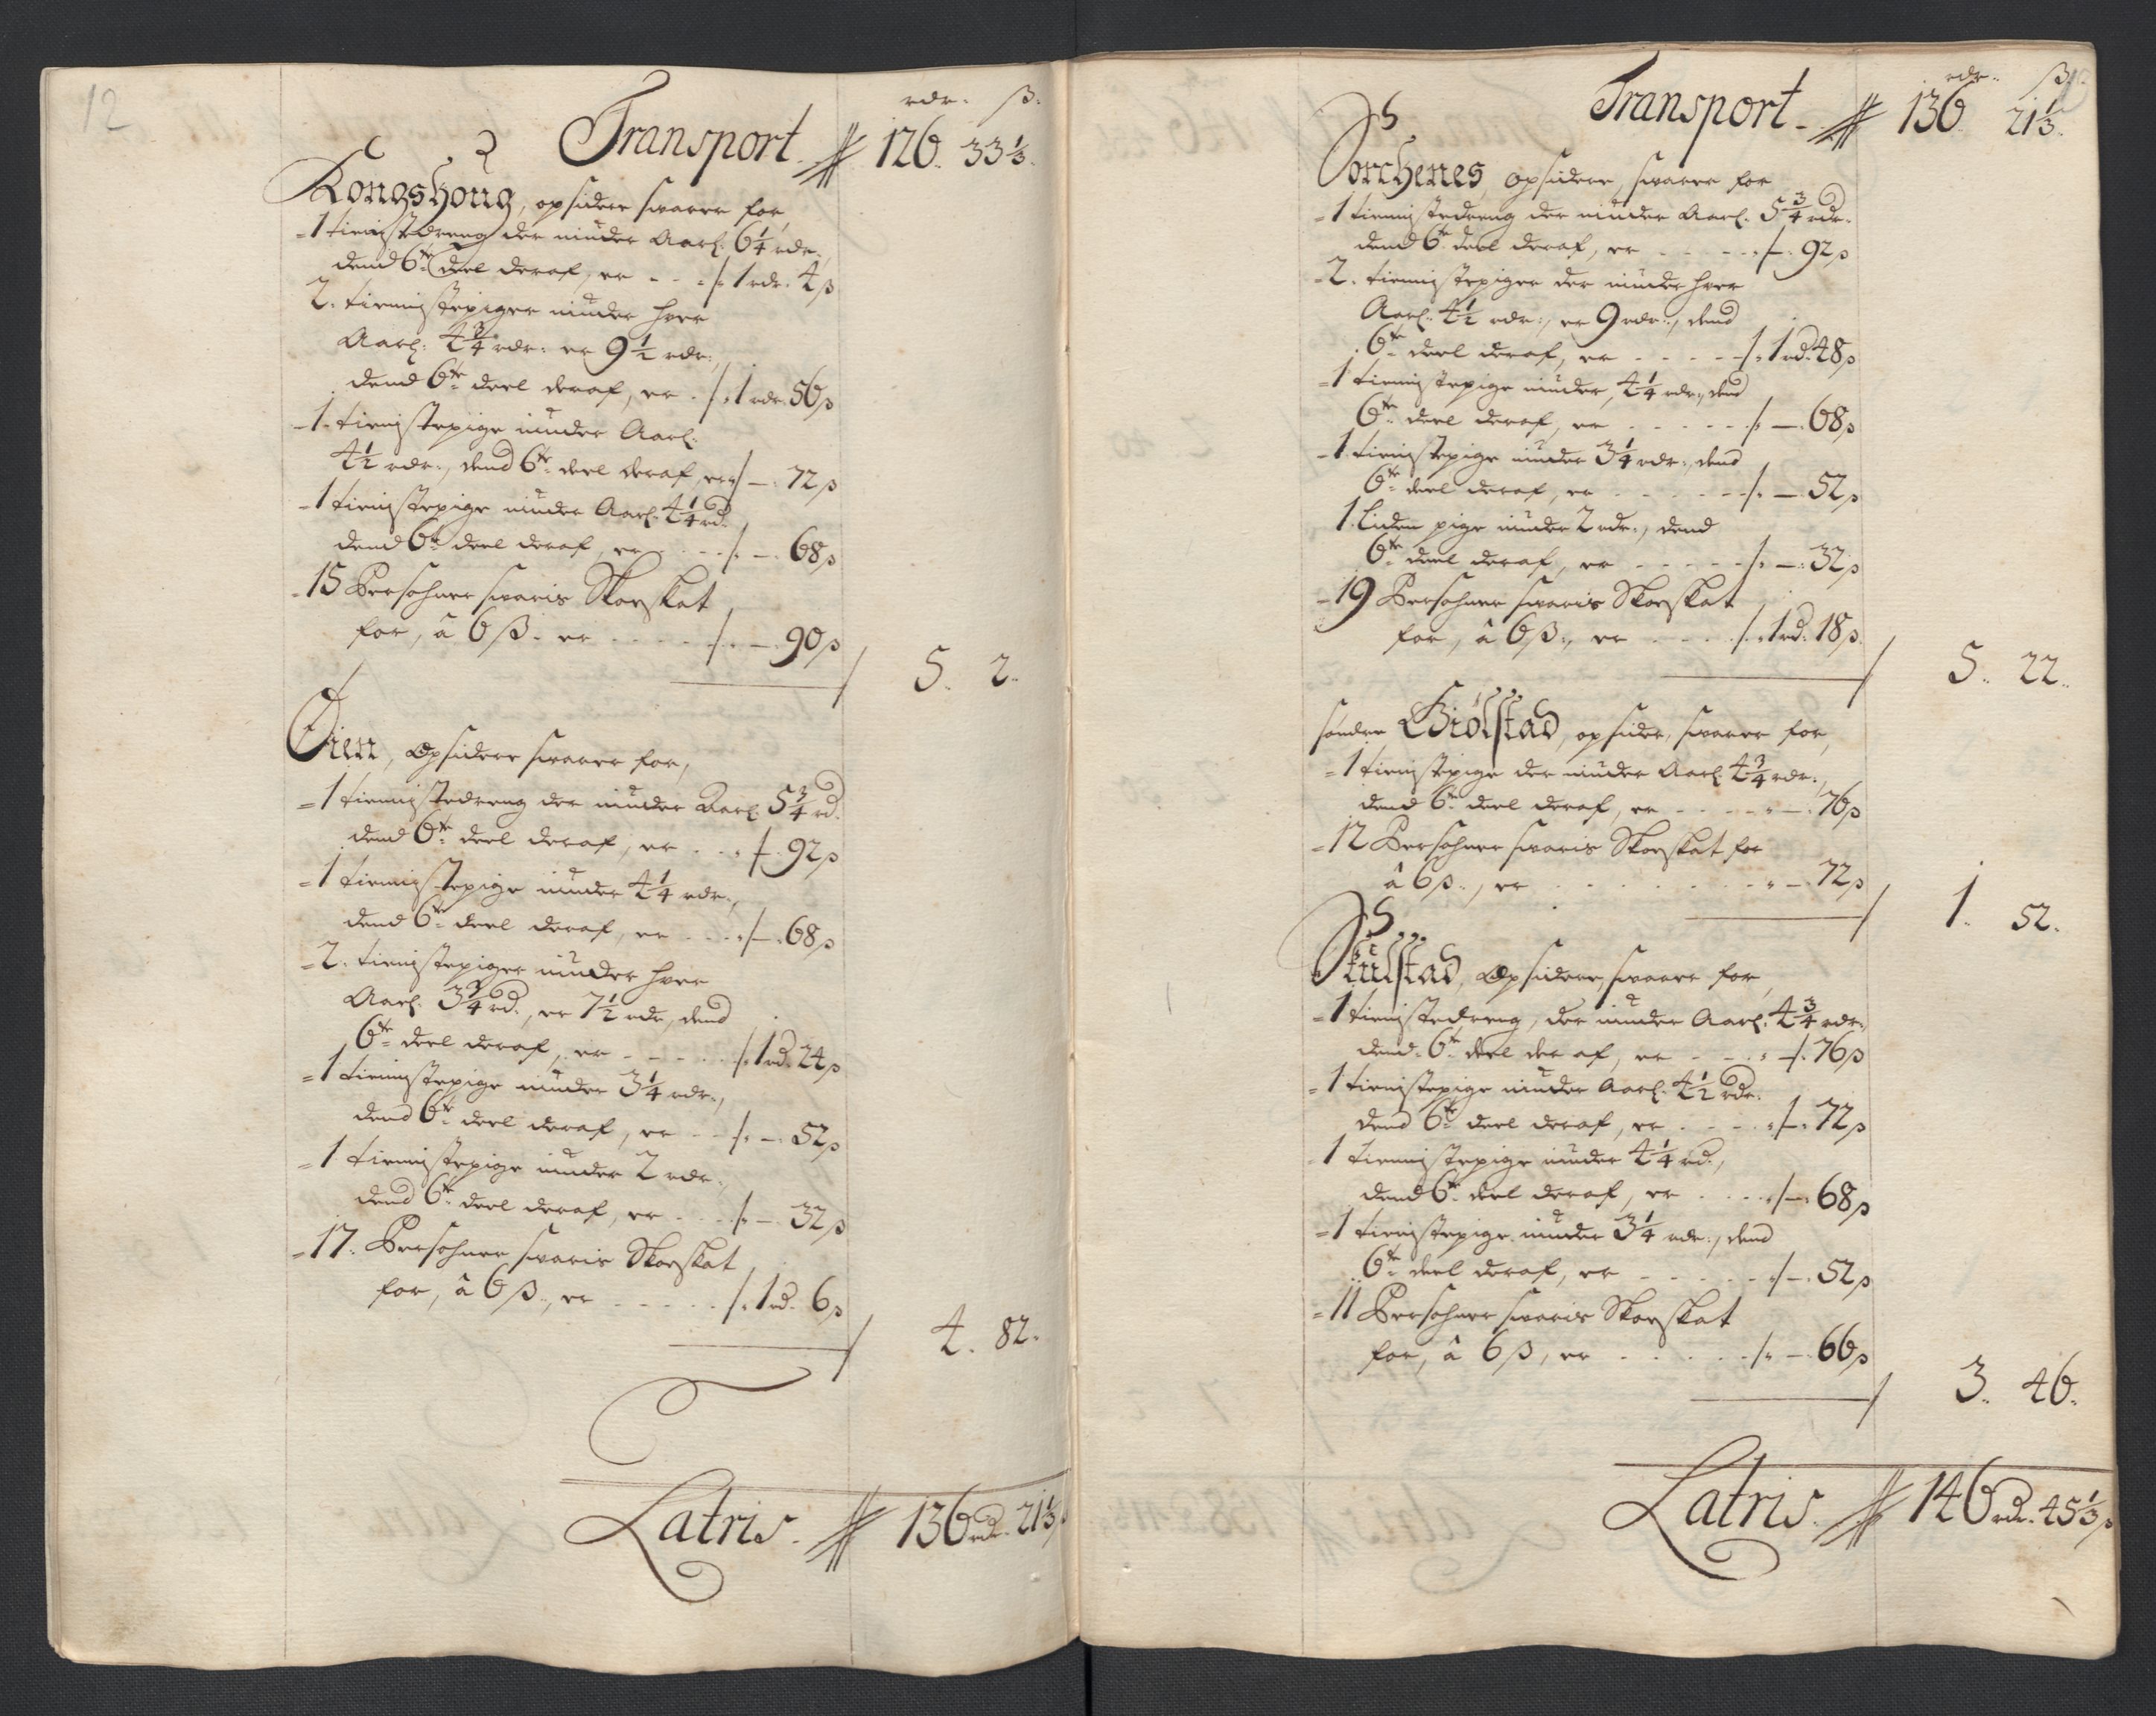 12
rdr. ß.
Transport. 126. 33 1/3.
Kongshoug, opsidere svarer for,
1 tienistedreng der niuder Aarl: 6 1/4 rdr.,
dend 6te deel deraf, er - - - 1 rdr. 4 ß
2. tienistepiger niuder hver
Aarl: 4 3/4 rdr: er 9 1/2 rdr:,
dend 6te deel deraf, er - 1 rdr. 56 ß
1. tienistepige niuder Aarl:
4 1/2 rdr:, dend 6te deel deraf, er — 72 ß
1 tienistepige niuder Aarl: 4 1/4 rd.
dend 6te deel deraf, er - - - — 68 ß
15 Persohner svaris Skoeskat
for, â 6 ß. er - - - - - — 90 ß
5. 2.
Øien, Opsidere svarer for,
1 tienistedreng der niuder Aarl: 5 3/4 rd.
dend 6te deel deraf, er - - - 92 ß
1 tienistepige niuder 4 1/4 rdr:,
dend 6te deel deraf, er - - - — 68 ß
2. tienistepiger niuder hver
Aarl: 3 3/4 rd., er 7 1/2 rdr, dend
6te deel deraf, er - - - - - 1 rd. 24 ß
1 tienistepige niuder 3 1/4 rdr:,
dend 6te deel deraf, er - - — 52 ß
1 tienistepige niuder 2 rdr:,
dend 6te deel deraf, er - - - — 32 ß
17. Persohner svaris Skoeskat
for, â 6 ß., er - - - - - 1 rd. 6 ß
4. 82.
Latris. 136 rdr. 21 1/3 ß
rdr. ß.
Transport - 136. 21 1/3.
Sorchenes, opsidere, svarer for
1 tienistedreng der niuder Aarl: 5 3/4 rdr.
dend 6te deel deraf, er - - - - — 92 ß
2. tienistepiger der niuder hver
Aarl: 4 1/2 rdr:, er 9 rdr:, dend
6te deel deraf, er - - - - - 1 rd. 48 ß
1 tienistepige niuder, 4 1/4 rdr:, dend
6te deel deraf, er - - - - - — 68 ß
1 tienistepige niuder 3 1/4 rdr:, dend
6te deel deraf, er - - - - - — 52 ß
1. Liden pige niuder 2 rdr:, dend
6te deel deraf, er - - - - - — 32 ß
19 Persohner svaris Skoeskat
for, â 6 ß:, er - - - - 1 rd. 18 ß.
5. 22.
søndre Giølstad, opsider, svarer for,
1 tienistepige der niuder Aarl: 4 3/4 rdr:,
dend 6te deel deraf, er - - - - — 76 ß
12 Persohner svaris Skoeskat for
â 6 ß., er - - - - - - — 72 ß
1. 52.
Stulstad, Opsidere, svarer for,
1 tienistedreng, der niuder Aarl: 4 3/4 rdr:,
dend 6te deel der af, er - - - — 76 ß
1 tienistepige niuder Aarl: 4 1/2 rdr.
dend 6te deel deraf, er - - - - — 72 ß
1 tienistepige niuder 4 1/4 rd.,
dend 6te deel deraf, er - - - - — 68 ß
1 tienistepige niuder 3 1/4 rdr:, dend
6te deel deraf, er - - - - - — 52 ß
11 Persohner svaris Skoeskat
for, â 6 ß, er - - - - - — 66 ß
3. 46.
Latris. 146 rdr. 45 1/3 ß